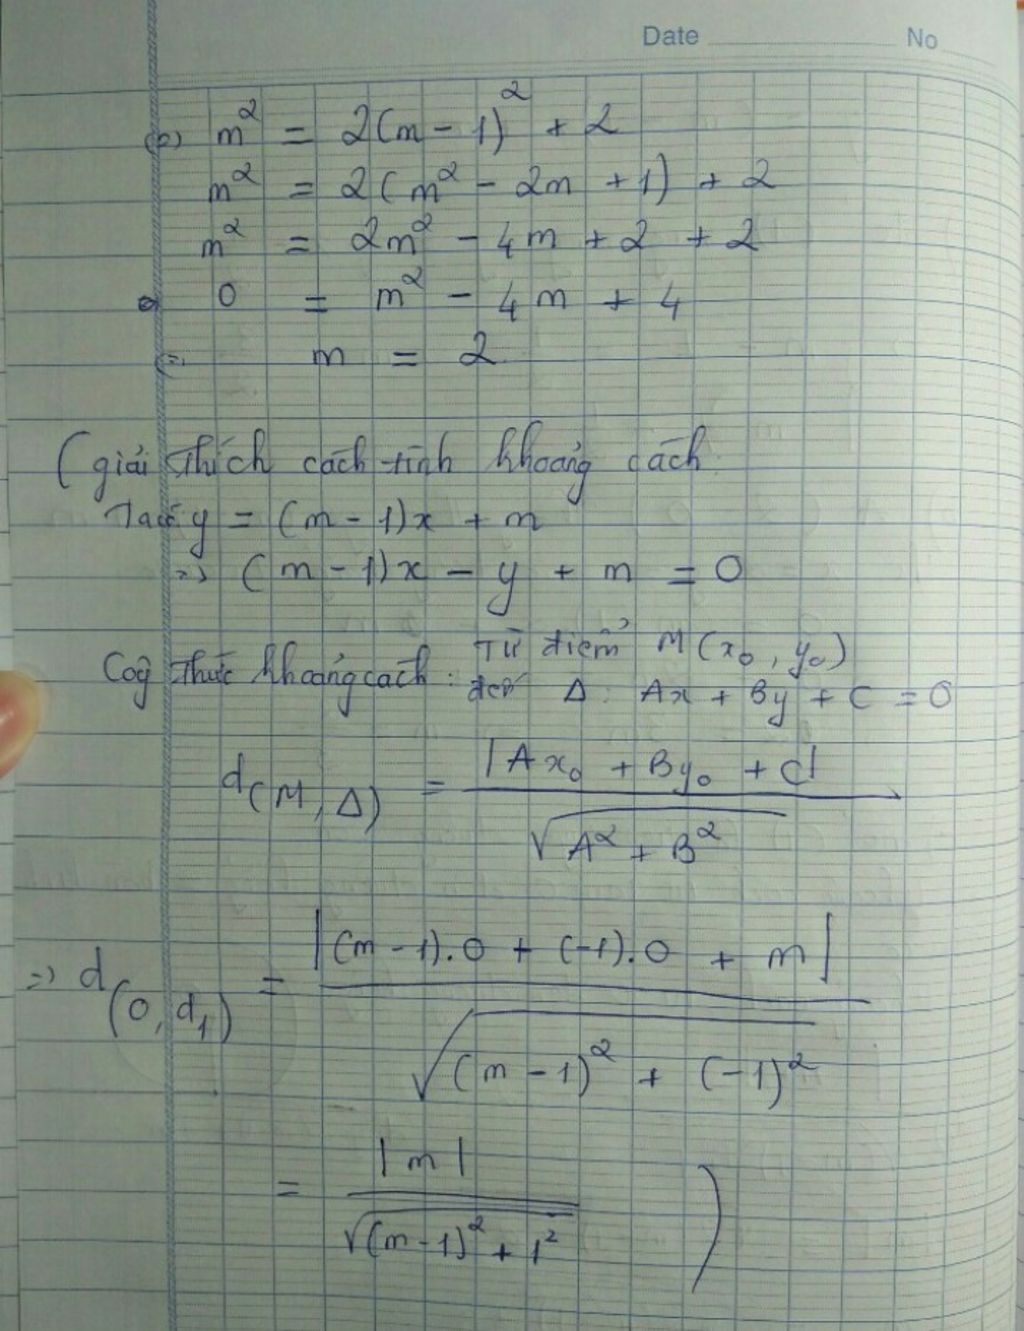 Date No
(=) m² = 2(m - 1)² + 2
m² = 2(m² - 2m + 1) + 2
m² = 2m² - 4m + 2 + 2
0 = m² - 4m + 4
(=) m = 2
(giải thích cách tính khoảng cách
Ta có y = (m - 1)x + m
=> (m - 1)x - y + m = 0
Cog thức khoảng cách: Từ điểm M(x₀, y₀)
đến Δ: Ax + By + C = 0
d(M, Δ) = |Ax₀ + By₀ + C| / √(A² + B²)
=> d(O, d₁) = |(m - 1).0 + (-1).0 + m| / √((m - 1)² + (-1)²)
= |m| / √((m - 1)² + 1²) )